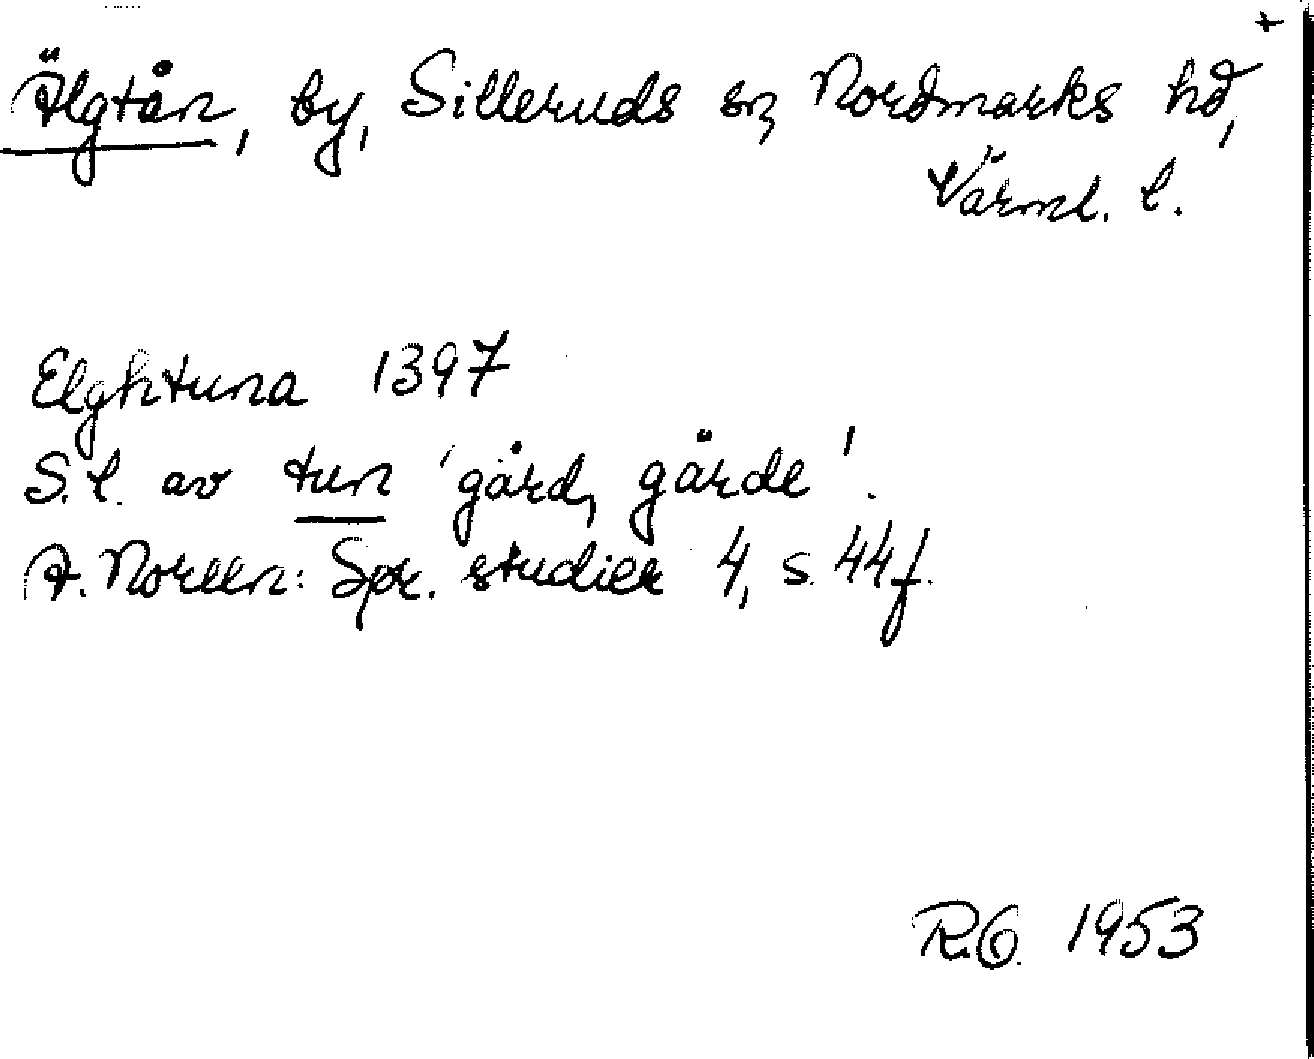 +
Älgtån, by, Silleruds sn, Nordmarks hd,
Värml. l.
Elghtuna 1397
S.l. av tun 'gård, gärde'.
A. Noreen: Spr. studier 4, s. 44 f.
R.O. 1953